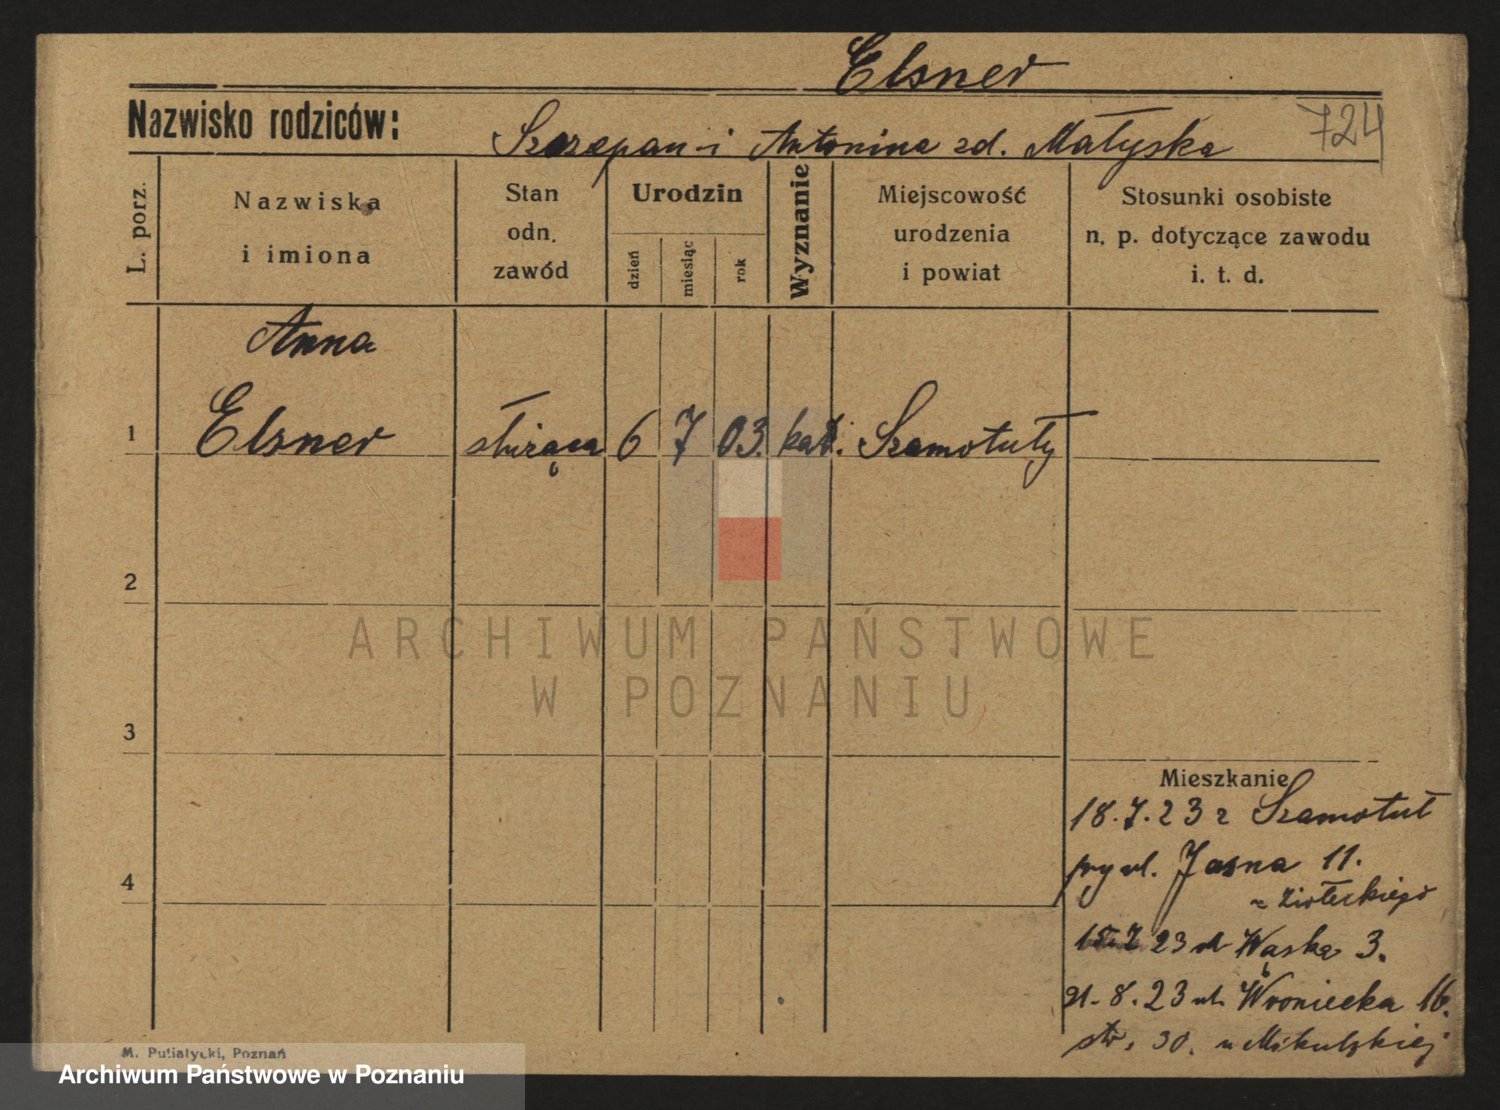 Elsner
Nazwisko rodziców: Szczepan i Antonina zd. Małyska
724
L. porz.
Nazwiska
i imiona
Stan
odn.
zawód
Urodzin
dzień
miesiąc
rok
Wyznanie
Miejscowość
urodzenia
i powiat
Stosunki osobiste
n. p. dotyczące zawodu
i. t. d.
Anna
1 Elsner służąca 6 7 03. kat. Szamotuły
2
ARCHIWUM PAŃSTWOWE
W POZNANIU
3
Mieszkanie
18.7.23 z Szamotuł
przy ul. Jasna 11.
4
u Ziołeckiego
23 ul Wąska 3.
21.8.23 ul. Wroniecka 16.
str. 30. u Mikulskiej
M. Putiatycki, Poznań
Archiwum Państwowe w Poznaniu